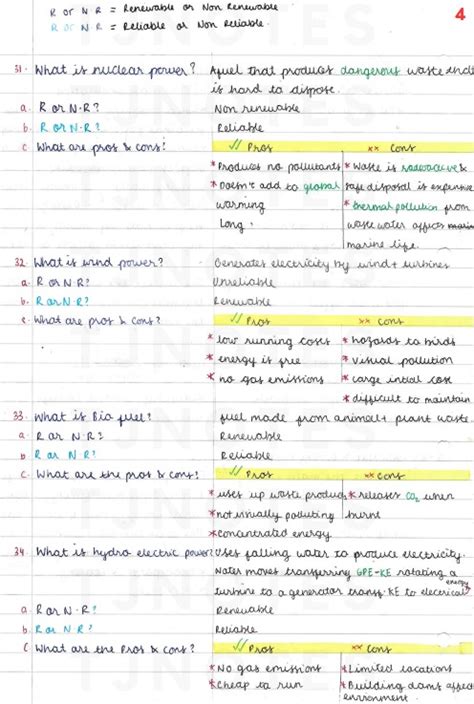 R or N·R = Renewable or Non Renewable
R or N·R = Reliable or Non Reliable.
4
TJNOTES
31. What is nuclear power? A fuel that produces dangerous waste and
is hard to dispose.
a. R or N·R? Non renewable
b. R or N·R? Reliable
c What are pros & cons? ✓✓ Pros ×× Cons
* Produces no pollutants * Waste is radioactive &
* Doesn't add to global safe disposal is expensive
warming * thermal pollution from
Long : waste water affects marin
marine life.
32. What is wind power? Generates electricity by wind + turbines
a. R or N·R? Unreliable
b. R or N·R? Renewable
c. What are pros & cons? ✓✓ Pros ×× Cons
* low running costs * hazards to birds
* energy is free * visual pollution
* no gas emissions * large initial cost
* difficult to maintain
33. What is Bio fuel? fuel made from animal + plant waste.
a R or N·R? Renewable
b R or N·R? Reliable
c. What are the pros & cons? ✓✓ Pros ×× Cons
* uses up waste produc * releases CO2 when
* not usually polluting burnt
* concentrated energy
34. What is hydro electric power? Uses falling water to produce electricity.
Water moves transferring GPE-KE rotating a
turbine to a generator transf. KE to elecrical energy
a R or N·R? Renewable
b. R or N·R? Reliable
c What are the Pros & Cons ✓✓ Pros ×× Cons
* No gas emissions * Limited locations
* Cheap to run * Building dams affect
environment